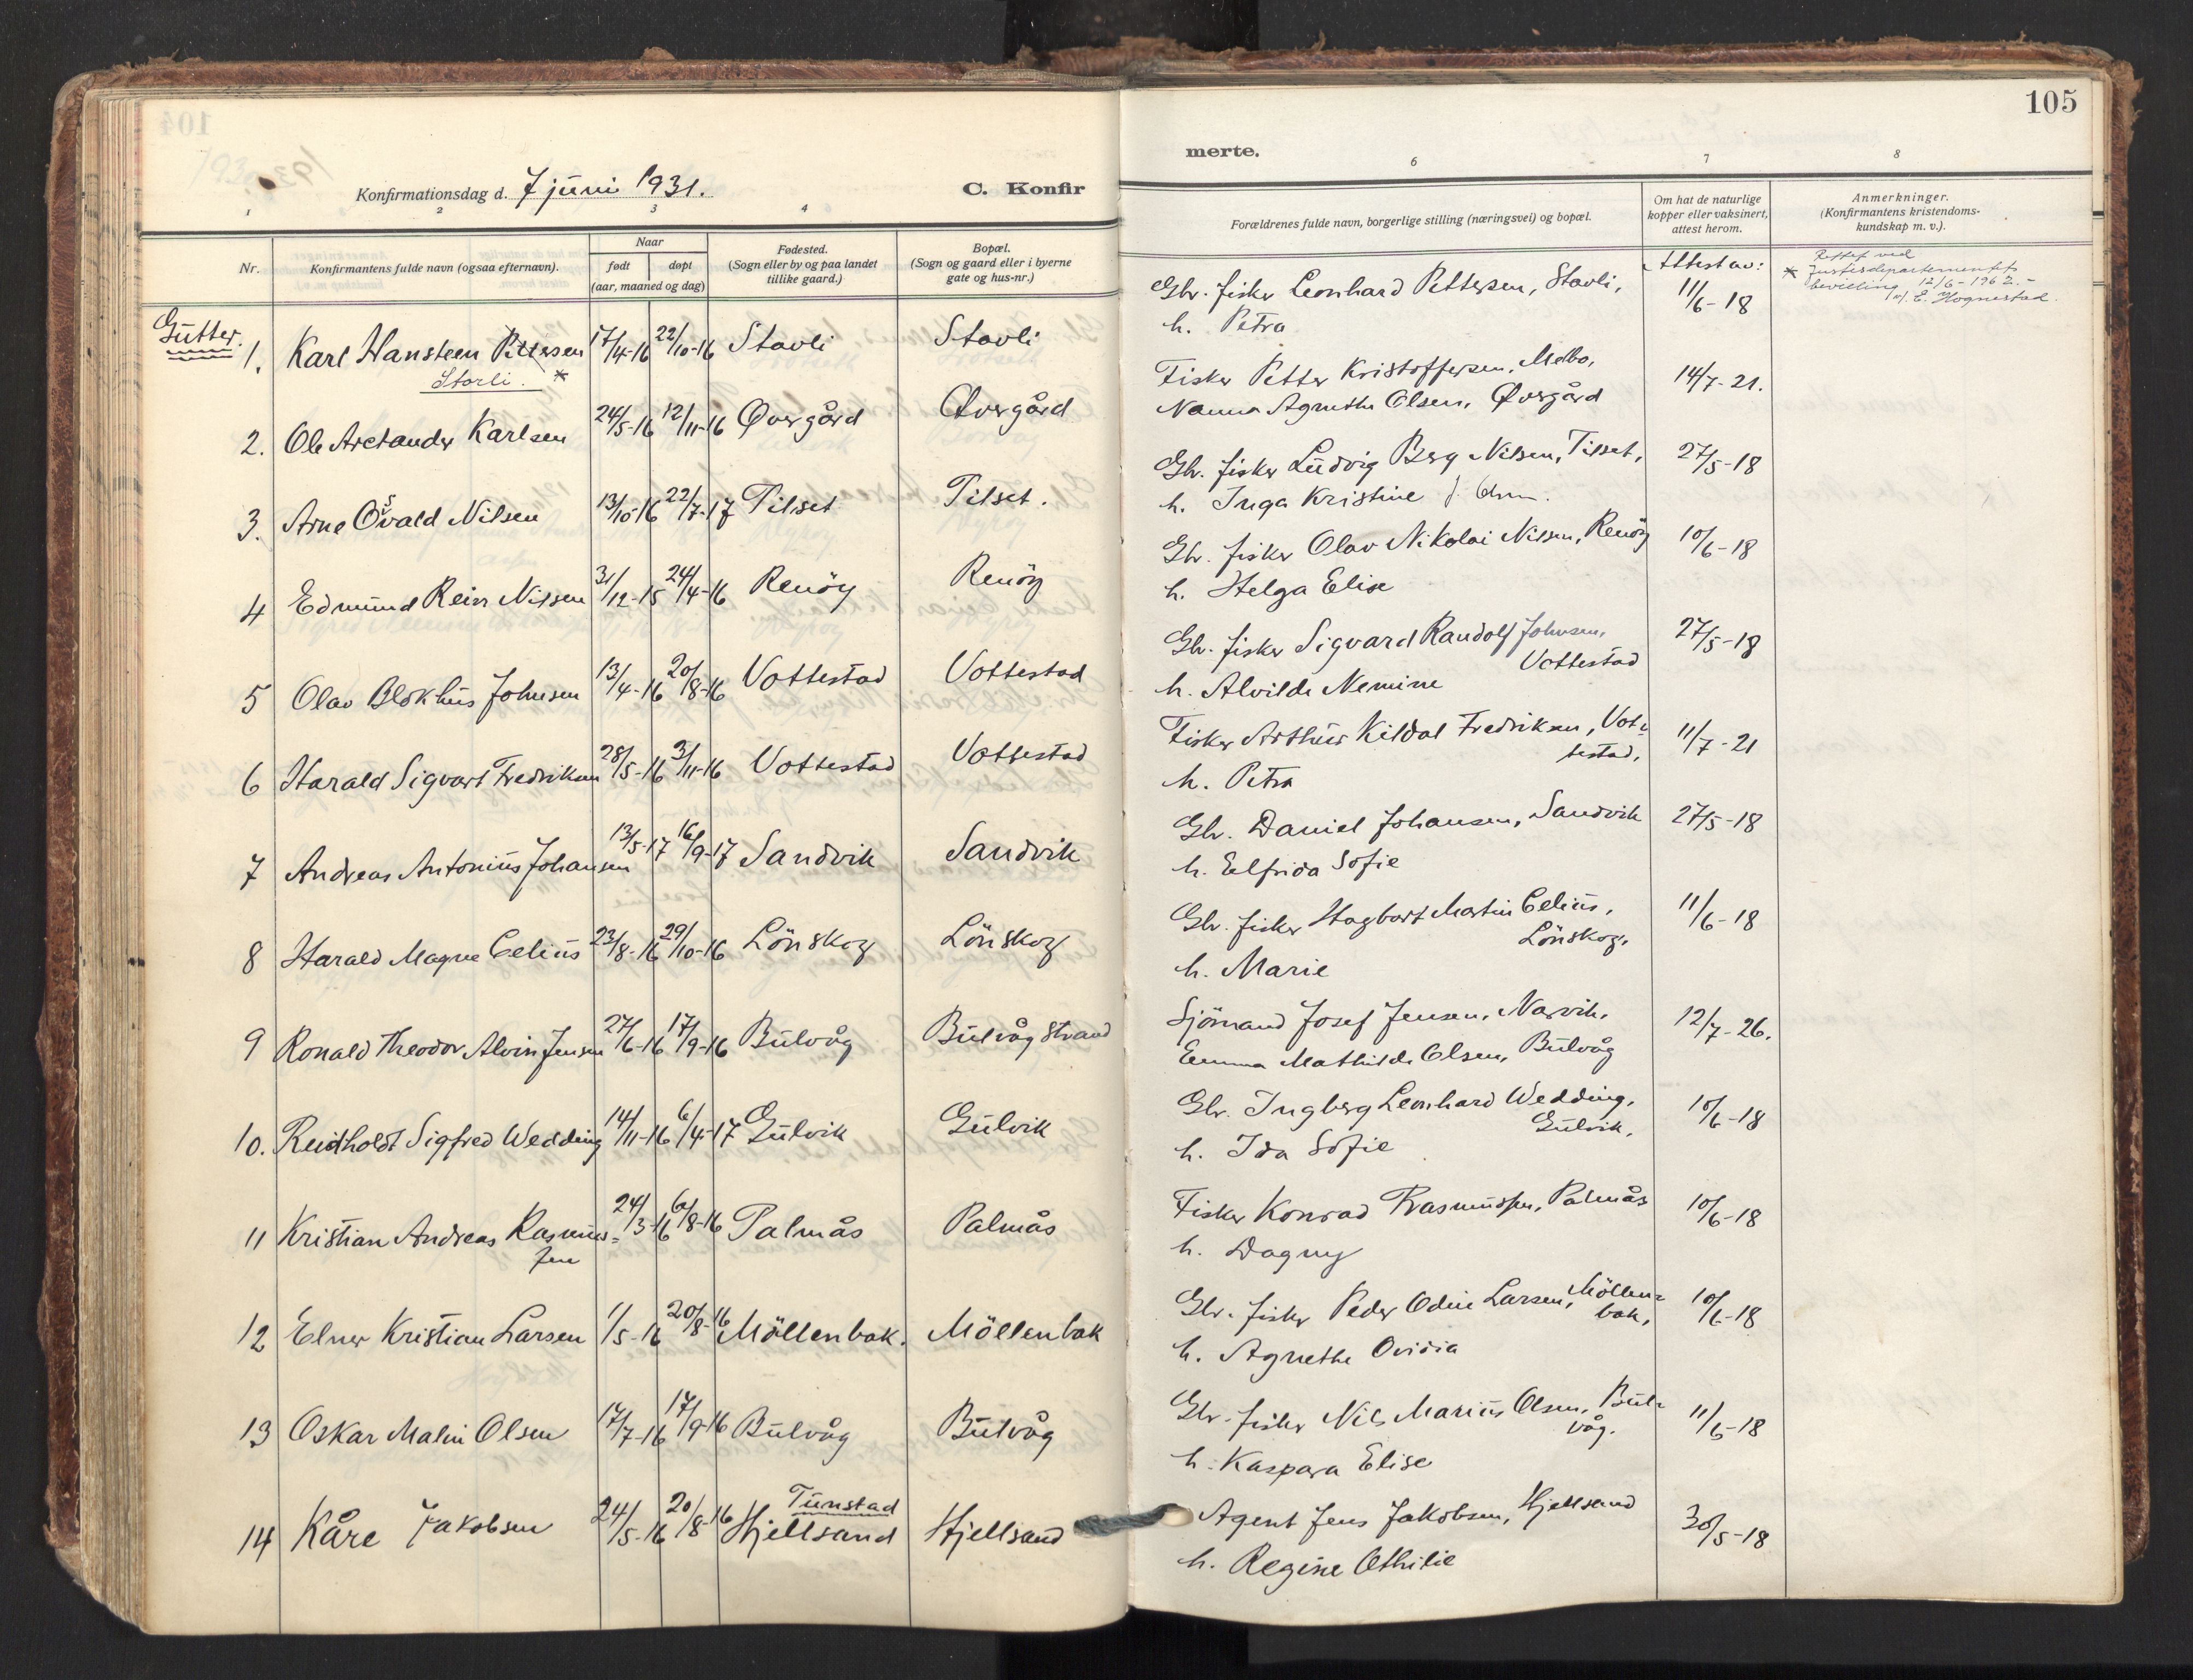 105
Konfirmationsdag d. 7 juni 1931.
C. Konfir
merte.
1 2 3 4 6 7 8
Nr.
Konfirmantens fulde navn (ogsaa efternavn).
Naar
født døpt
(aar, maaned og dag)
Fødested.
(Sogn eller by og paa landet
tillike gaard.)
Bopæl.
(Sogn og gaard eller i byerne
gate og hus-nr.)
Forældrenes fulde navn, borgerlige stilling (næringsvei) og bopæl.
Om hat de naturlige
kopper eller vaksinert,
attest herom.
Anmerkninger.
(Konfirmantens kristendoms-
kundskap m. v.).
Gutter.
1. Karl Hansteen Pettersen 17/4-16 22/10-16 Stavli Stavli
Storli. *
Gbr. fisker Leonhard Pettersen, Stavli,
h. Petra
Attest av:
11/6-18
Rettet ved
* Justisdepartementets
bevilling 12/6-1962.-
E. Hognestad.
2. Ole Arctander Karlsen 24/5-16 12/11-16 Øvergård Øvergård
Fisker Petter Kristoffersen, Melbo,
Nanna Agnethe Olsen, Øvergård
14/7-21.
3. Arne Osvald Nilsen 13/10-16 22/7-17 Tilset Tilset.
Gbr. fisker Ludvig Berg Nilsen, Tilset,
h. Inga Kristine
27/5-18
4 Edmund Rein Nilsen 31/12-15 24/4-16 Renöy Renöy
Gbr. fisker Olav Nikolai Nilsen, Renöy
h. Helga Elise
10/6-18
5 Olav Blokhus Johnsen 13/4-16 20/8-16 Vottestad Vottestad
Gbr. fisker Sigvard Randolf Johnsen,
Vottestad
h. Alvilde Nemine
27/5-18
6 Harald Sigvart Fredriksen 28/5-16 3/11-16 Vottestad Vottestad
Fisker Arthur Kildal Fredriksen, Vot-
testad,
h. Petra
11/7-21
7 Andreas Antonius Johansen 13/5-17 16/9-17 Sandvik Sandvik
Gbr. Daniel Johansen, Sandvik
h. Elfrida Sofie
27/5-18
8 Harald Magne Celius 23/8-16 29/10-16 Lönskog Lönskog
Gbr. fisker Hagbart Martin Celius,
Lönskog,
h. Marie
11/6-18
9 Ronald Theodor Alvin Jensen 27/6-16 17/9-16 Bulvåg Bulvåg Strand
Sjömand Josef Jensen, Narvik,
Emma Mathilde Olsen, Bulvåg
12/7-26.
10. Reidholdt Sigfred Wedding 14/11-16 6/4-17 Gulvik Gulvik
Gbr. Ingberg Leonhard Wedding,
Gulvik,
h. Ida Sofie
10/6-18
11 Kristian Andreas Rasmus-
sen 24/3-16 6/8-16 Palmås Palmås
Fisker Konrad Rasmussen, Palmås
h. Dagny
10/6-18
12 Elner Kristian Larsen 1/5-16 20/8-16 Möllenbak. Möllenbak
Gbr. fisker Peder Odin Larsen, Möllen-
bak,
h. Agnethe Ovidia
10/6-18
13 Oskar Malin Olsen 17/7-16 17/9-16 Bulvåg Bulvåg
Gbr. fisker Nils Marius Olsen, Bul-
våg.
h. Kaspara Elise
11/6-18
14 Kåre Jakobsen 24/5-16 20/8-16 Tunstad
Hjellsand Hjellsand
Agent Jens Jakobsen, Hjellsand
h. Regine Othilie
30/5-18